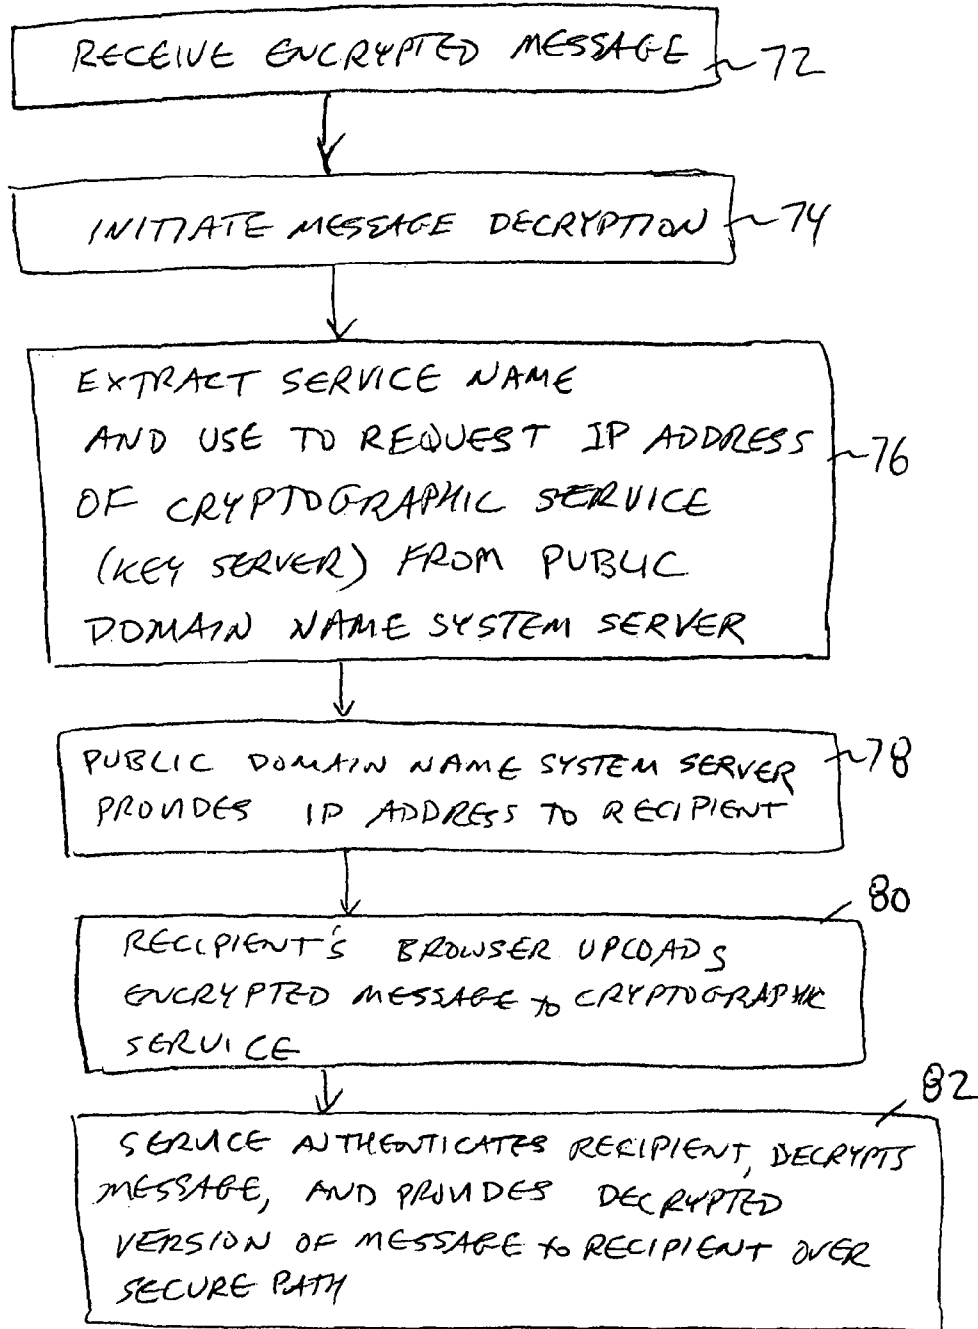 RECEIVE ENCRYPTED MESSAGE 72
INITIATE MESSAGE DECRYPTION 74
EXTRACT SERVICE NAME
AND USE TO REQUEST IP ADDRESS
OF CRYPTOGRAPHIC SERVICE
(KEY SERVER) FROM PUBLIC
DOMAIN NAME SYSTEM SERVER
76
PUBLIC DOMAIN NAME SYSTEM SERVER
PROVIDES IP ADDRESS TO RECIPIENT
78
80
RECIPIENT'S BROWSER UPLOADS
ENCRYPTED MESSAGE to CRYPTOGRAPHIC
SERVICE
82
SERVICE AUTHENTICATES RECIPIENT, DECRYPTS
MESSAGE, AND PROVIDES DECRYPTED
VERSION OF MESSAGE to RECIPIENT OVER
SECURE PATH